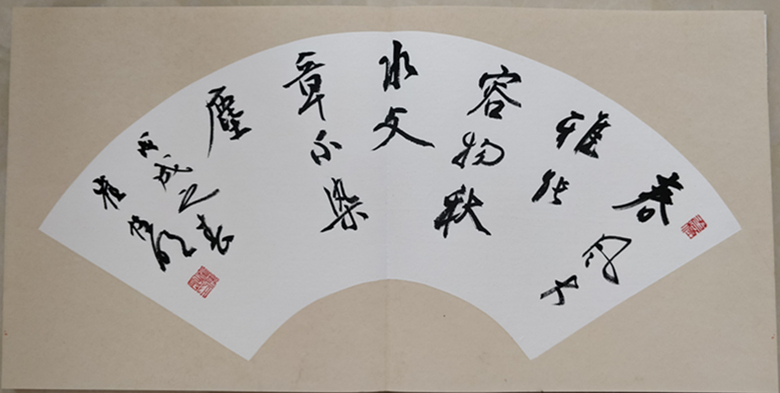 春风大
雅能
容物秋
水文
章不染
塵
丙戌之春
崔